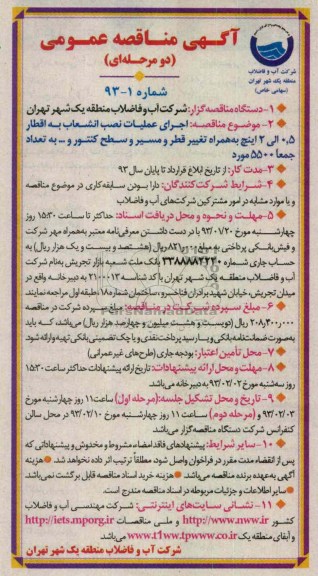 شرکت آب و فاضلاب
منطقه یک شهر تهران
(سهامی خاص)
آگهی مناقصه عمومی
(دو مرحله‌ای)
شماره ۱-۹۳
۱-دستگاه مناقصه گزار: شرکت آب و فاضلاب منطقه یک شهر تهران
۲-موضوع مناقصه: اجرای عملیات نصب انشعاب به اقطار
۰٫۵ الی ۲ اینچ به همراه تغییر قطر و مسیر و سطح کنتور و ... به تعداد
جمعا ۵۵۰۰ مورد
۳-مدت کار: از تاریخ ابلاغ قرارداد تا پایان سال ۹۳
۴-شرایط شرکت‌کنندگان: دارا بودن سابقه کاری در موضوع مناقصه
و یا موارد مشابه در امور مشترکین شرکت‌های آب و فاضلاب
۵-مهلت و نحوه و محل دریافت اسناد: حداکثر تا ساعت ۱۵:۳۰ روز
چهارشنبه مورخ ۹۳/۰۱/۲۰ با در دست داشتن معرفی‌نامه معتبر به همراه مهر شرکت
و فیش بانکی پرداختی به مبلغ ۸۲۱٫۰۰۰ ریال (هشتصد و بیست و یک هزار ریال) به
حساب جاری شماره ۲۳۸۸۸۴۲۲۴۰ بانک ملت شعبه بازار تجریش به‌نام شرکت
آب و فاضلاب منطقه یک شهر تهران با کد شناسه ۲۱۰۰۰۱۳ به دبیرخانه واقع در
میدان تجریش، خیابان شهید برادران فناخسرو، ساختمان شماره ۱۸، طبقه اول مراجعه نمایند.
۶-مبلغ سپرده شرکت در مناقصه: مبلغ سپرده شرکت در مناقصه
۲۰۸٫۴۰۰٫۰۰۰ ریال (دویست و هشت میلیون و چهارصد هزار ریال) می‌باشد، که باید
به‌صورت ضمانتنامه بانکی و یا رسید پرداخت نقدی و یا چک تضمینی بانکی تهیه و ارائه شود.
۷-محل تأمین اعتبار: بودجه جاری (طرح‌های غیر عمرانی)
۸-مهلت و محل ارائه پیشنهادات: تاریخ ارائه پیشنهادات حداکثر ساعت ۱۵:۳۰
روز سه‌شنبه مورخ ۹۳/۰۲/۰۲ به دبیرخانه می‌باشد.
۹-تاریخ و محل تشکیل جلسه: (مرحله اول) ساعت ۱۱ روز چهارشنبه مورخ
۹۳/۰۲/۰۳ و (مرحله دوم) ساعت ۱۱ روز چهارشنبه مورخ ۹۳/۰۲/۱۰ در محل سالن
کنفرانس شرکت دستگاه مناقصه گزار می‌باشد.
۱۰-سایر شرایط: پیشنهادهای فاقد امضاء، مشروط و مخدوش و پیشنهاداتی که
پس از انقضاء مدت مقرر در فراخوان واصل شود، مطلقاً ترتیب اثر داده نخواهد شد. هزینه
آگهی به عهده برنده مناقصه می‌باشد. هزینه خرید اسناد مناقصه قابل برگشت نمی‌باشد
سایر اطلاعات و جزئیات مربوطه در اسناد مناقصه مندرج است.
۱۱-نشانی سایت‌های اینترنتی: شرکت مهندسی آب و فاضلاب
کشور http://www.nww.ir و ملی مناقصات http://iets.mporg.ir
و آبفای منطقه یک www.t1ww.tpwww.co.ir می‌باشد.
شرکت آب و فاضلاب منطقه یک شهر تهران